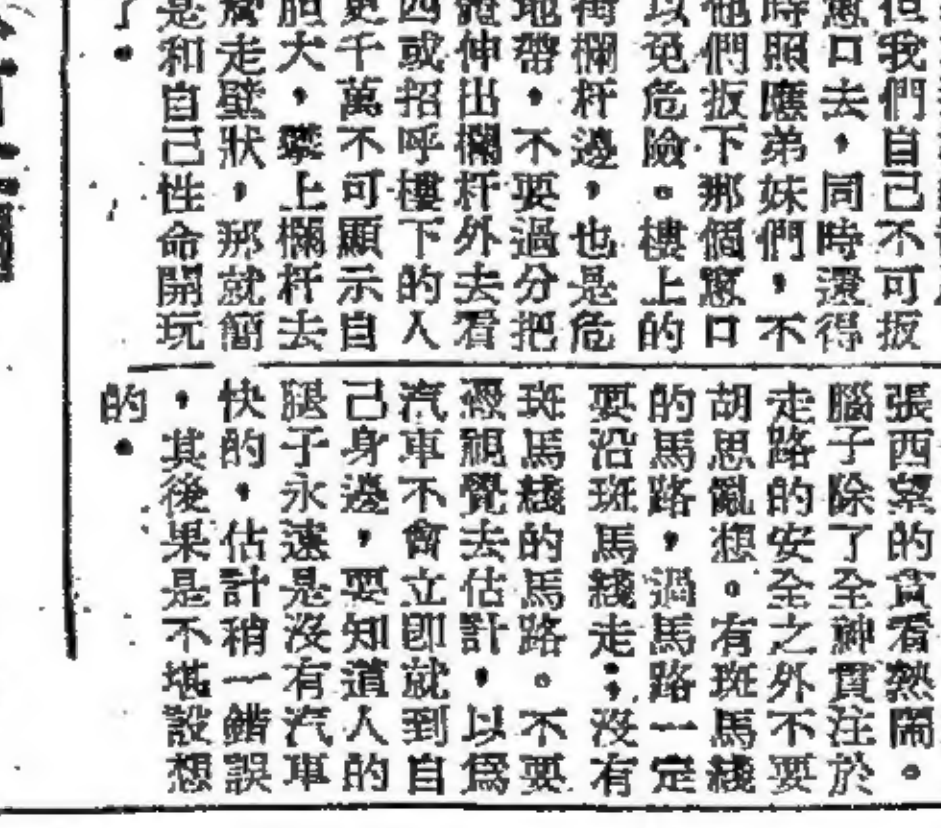 但我們自己不可扳
窻口去，同時還得
時照應弟妹們，不
他們扳下那個窻口
以免危險。樓上的
街欄杆邊，也是危
地帶，不要過分把
體伸出欄杆外去看
四或招呼樓下的人
更千萬不可顯示自
胆大，攀上欄杆去
走壁狀，那就簡
是和自己性命開玩
了。
張西望的貪看熱鬧。
腦子除了全神貫注於
走路的安全之外不要
胡思亂想。有斑馬綫
的馬路，過馬路一定
要沿斑馬綫走；沒有
斑馬綫的馬路。不要
經視覺去估計，以爲
汽車不會立即就到自
己身邊，要知道人的
腿子永遠是沒有汽車
快的，估計稍一錯誤
，其後果是不堪設想
的。